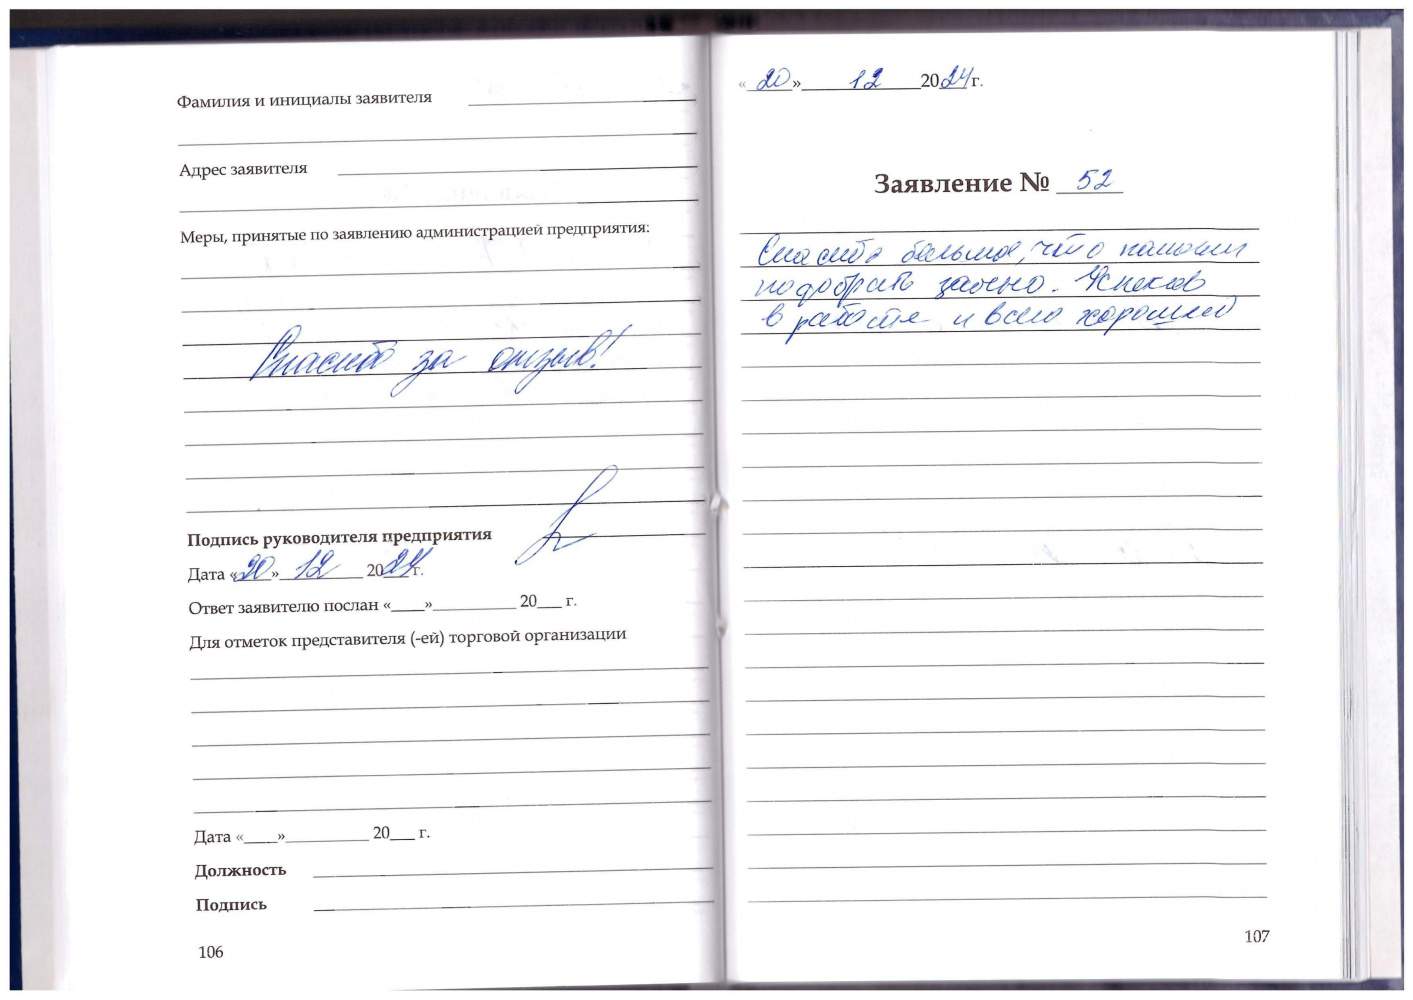 Фамилия и инициалы заявителя
Адрес заявителя
Меры, принятые по заявлению администрацией предприятия:
Спасибо за отзыв!
Подпись руководителя предприятия
Дата «20» 12 2024 г.
Ответ заявителю послан «____»__________ 20___ г.
Для отметок представителя (-ей) торговой организации
Дата «____»__________ 20___ г.
Должность
Подпись
106
«20» 12 2024 г.
Заявление № 52
Спасибо большое, что помогли
подобрать
в работе и всего хорошего
107